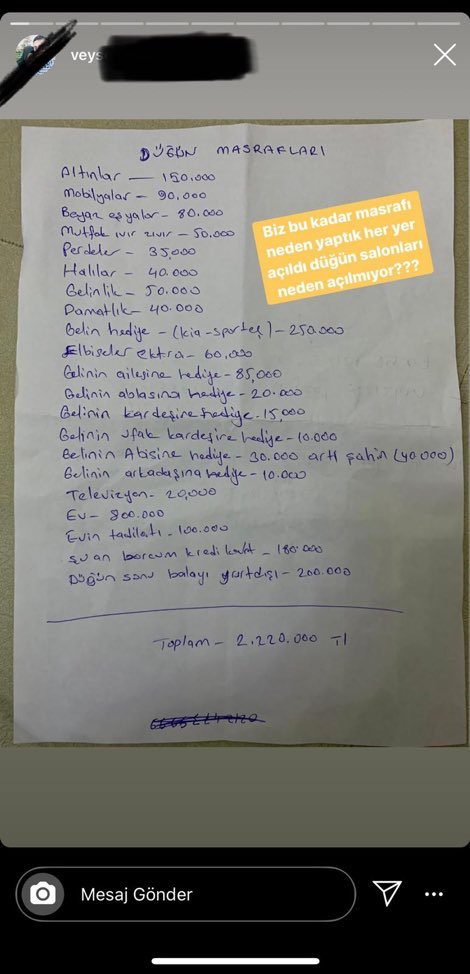 veys
DÜĞÜN MASRAFLARI
Altınlar — 150.000
Mobilyalar - 90.000
Beyaz eşyalar - 80.000
Mutfak ıvır zıvır - 50.000
Perdeler - 35,000
Halılar - 40.000
Gelinlik - 50.000
Damatlık - 40.000
Gelin hediye - (kia - sporteş) - 250.000
Elbiseler ektra - 60,000
Gelinin ailesine hediye - 85,000
Gelinin ablasına hediye - 20.000
Gelinin kardeşine hediye - 15,000
Gelinin ufak kardeşine hediye - 10.000
Gelinin Abisine hediye - 30.000 artı şahin (40.000)
Gelinin arkadaşına hediye - 10.000
Televizyon - 20,000
Ev - 800.000
Evin tadilatı - 100.000
şu an borcum kredi kartı - 180.000
Düğün sonu balayı yurtdışı - 200.000
Toplam - 2.220.000 Tl
Biz bu kadar masrafı
neden yaptık her yer
açıldı düğün salonları
neden açılmıyor???
Mesaj Gönder